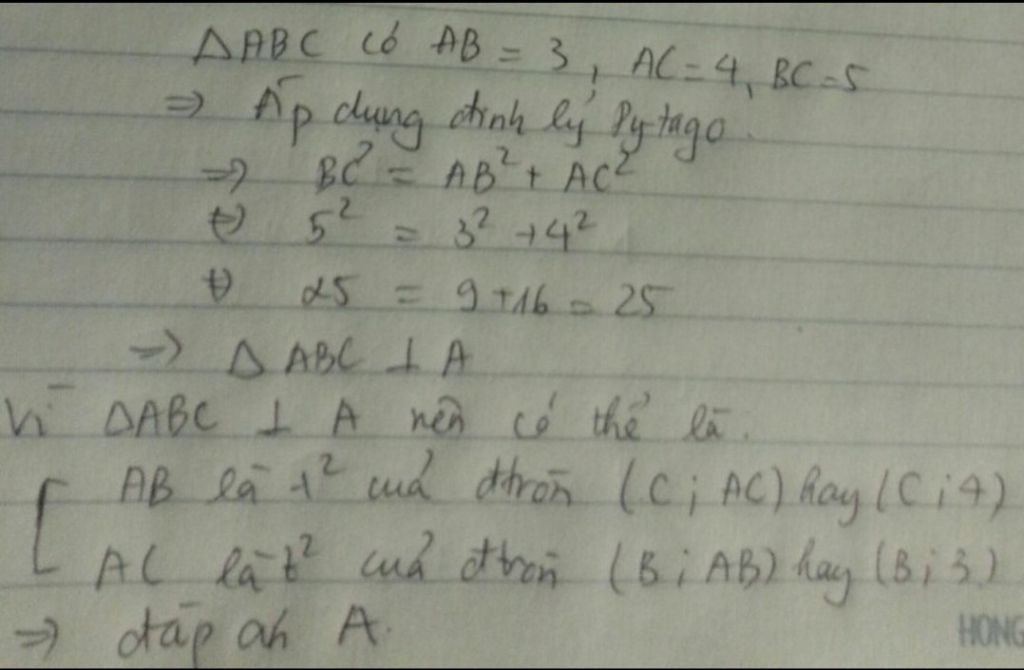 ΔABC có AB = 3, AC = 4, BC = 5
=> Áp dụng định lý Pytago.
=> BC² = AB² + AC²
<=> 5² = 3² + 4²
<=> 25 = 9 + 16 = 25
=> Δ ABC ⊥ A
Vì ΔABC ⊥ A nên có thể là.
[ AB là t² của đtròn (C; AC) hay (C; 4)
AC là t² của đtròn (B; AB) hay (B; 3)
=> đáp án A.
HONG